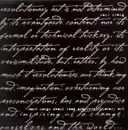 revolutionary art is not determined
by its avant-garde content, nor its
formal or technical trickery, its
interpretation of reality or its
verisimilitude, but, rather, by how
much it revolutionizes our thinking
and imagination; overturning our
preconceptions, bias and prejudice
and inspiring us to change
ourselves and the world.